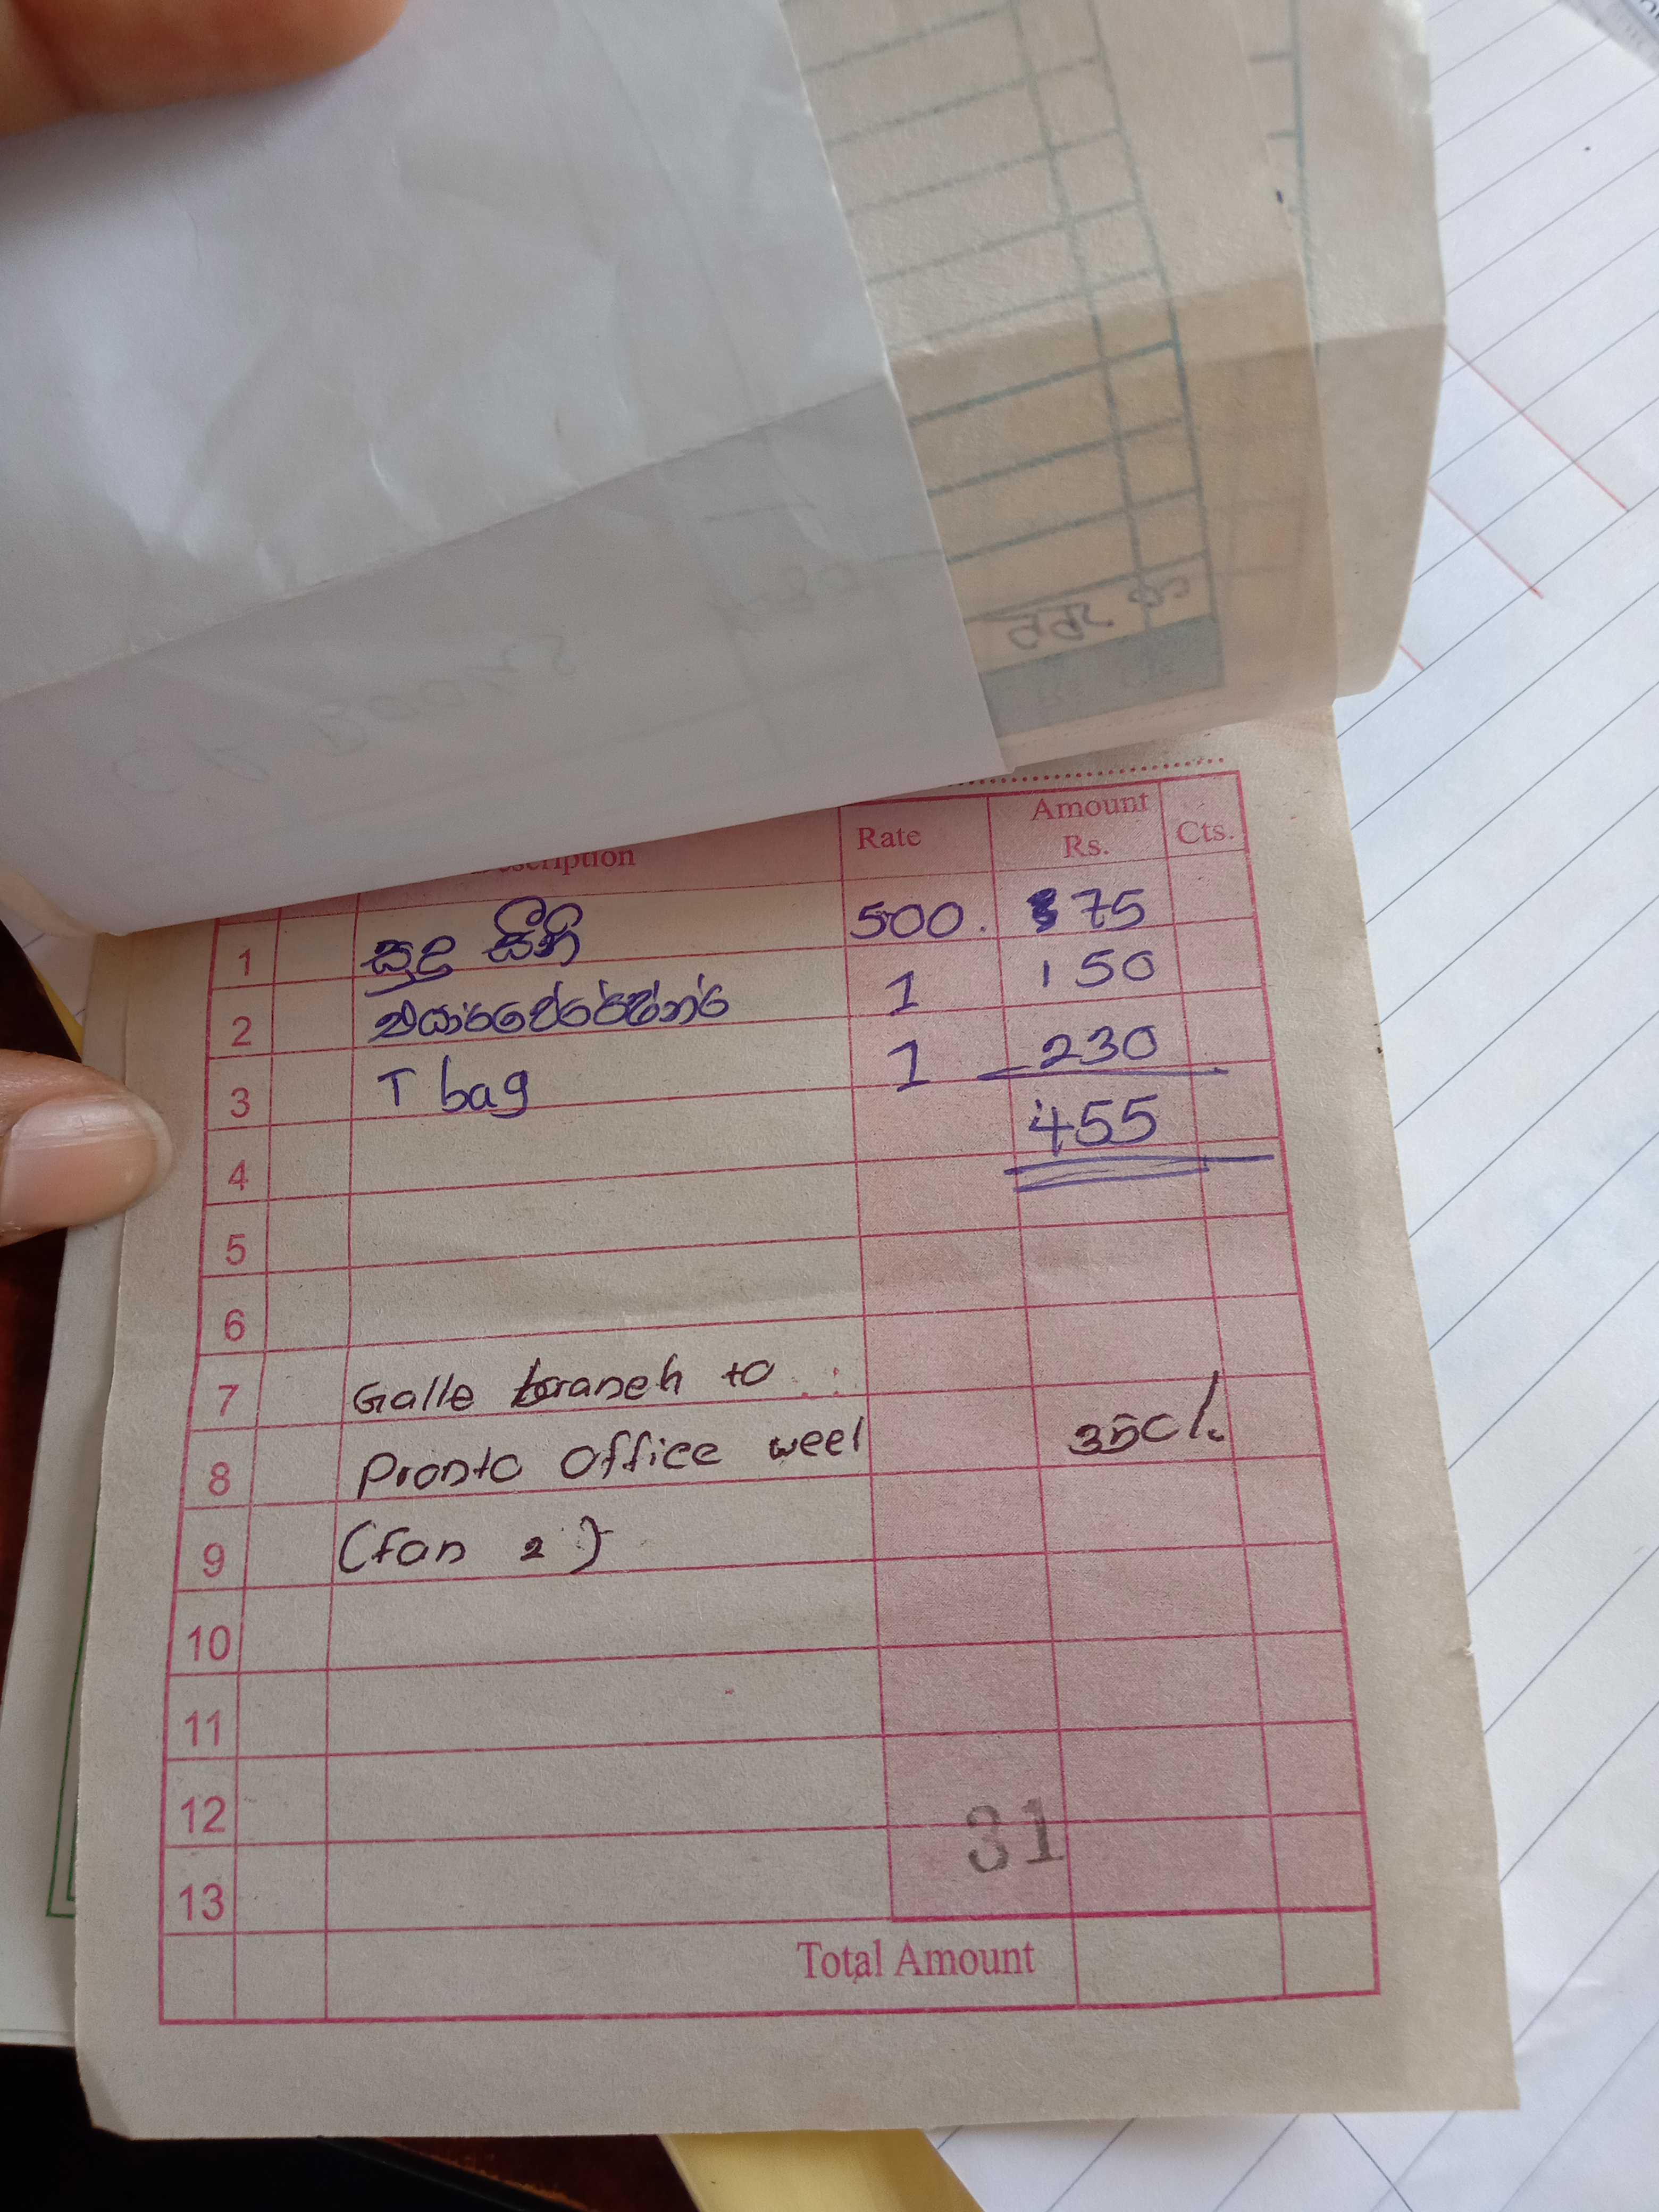 Description Rate Amount Rs. Cts.
1 සුදු සීනි 500. 75
2 එයාර්ෆ්‍රෙෂ්නර් 1 150
3 T bag 1 230
4 455
5
6
7 Galle branch to
8 Pronto office weel 350/.
9 (fan 2)
10
11
12
31
13
Total Amount